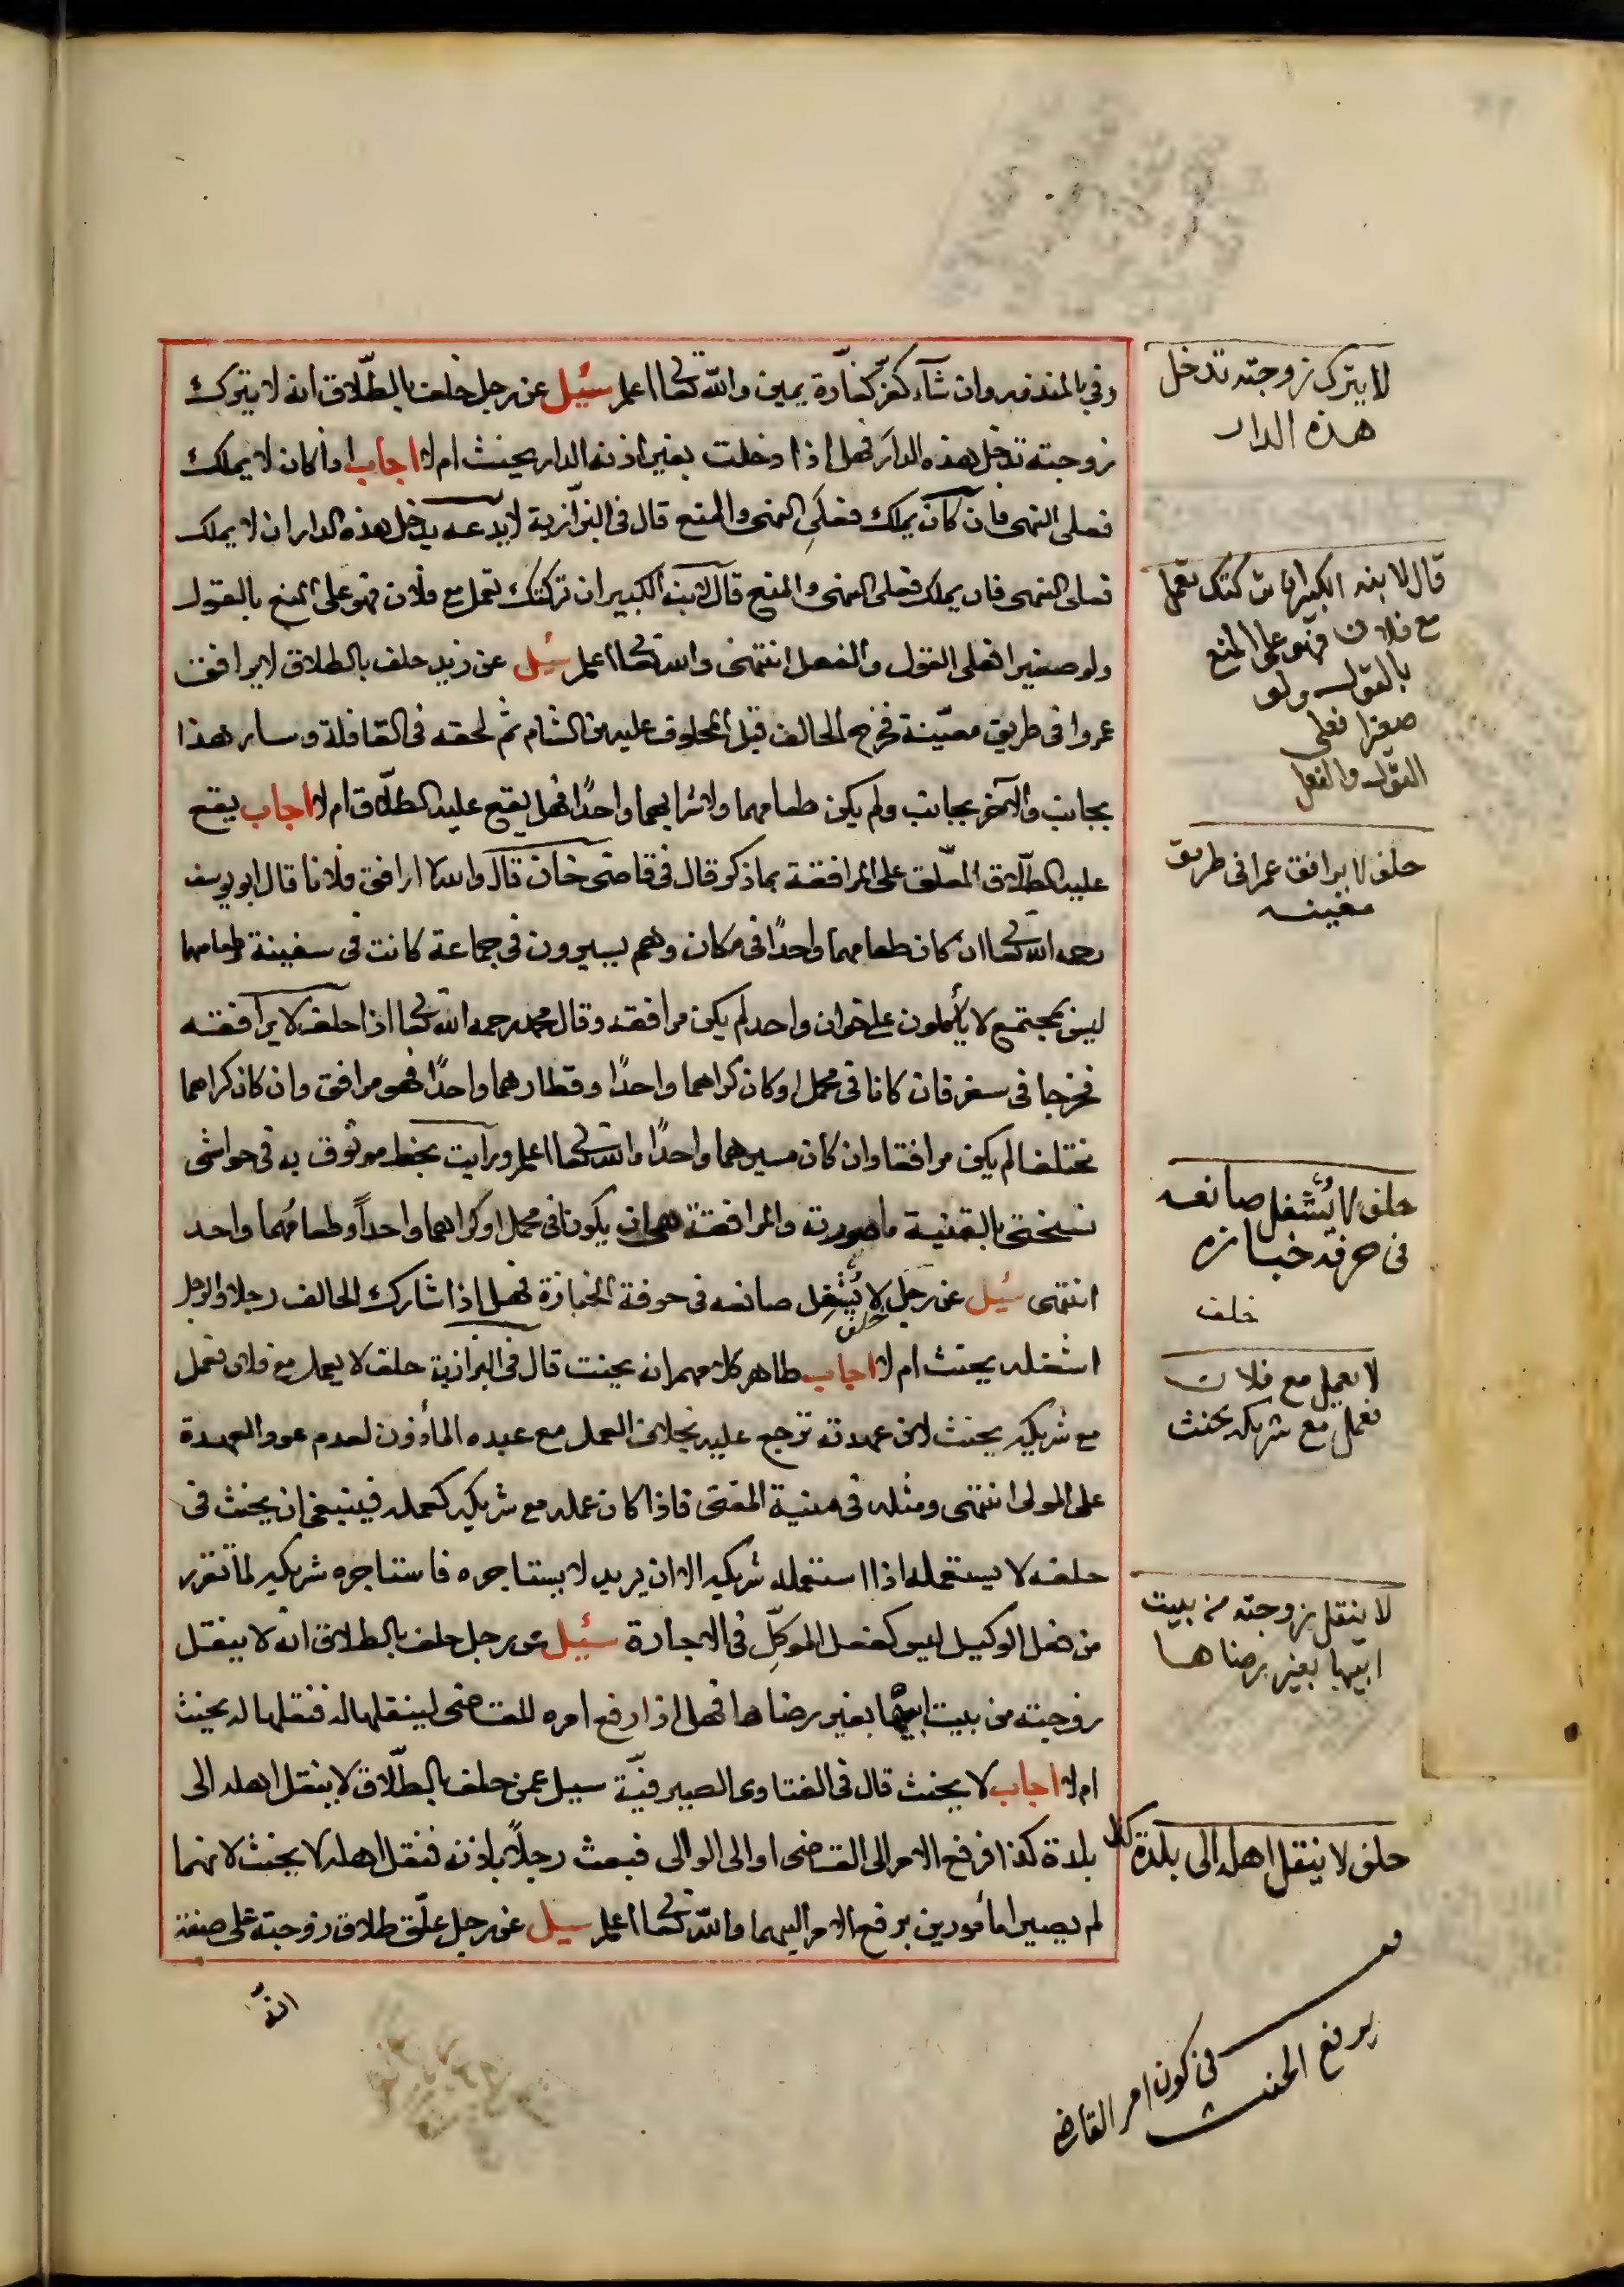 وفي بالمنذور وان شآء كفّر كفّارة يمين والله تعالى اعلم سئيل عن رجل حلف بالطّلاق انه لا يترك
زوجته تدخل هذه الدار فهل اذا دخلت بغير اذنه الدار يحنث ام لا اجاب اذا كان لا يملك
فعلى النهى فان كان يملك فعلى النهى والمنع قال فى البزّازية لا يدعه يدخل هذه الدار ان لا يملك
فعلى النهى فان يملك فعلى النهى والمنع قال لابنه الكبير ان تركتك تعمل مع فلان فهو على المنع بالقول
ولو صغيرا فعلى القول والفعل انتهى والله تعالى اعلم سئيل عن زيد حلف بالطلاق لا يرافق
عمروا فى طريق معيّنة فخرج الحالف قبل المحلوف عليه من الشام ثم لحقه فى القافلة وسار هذا
بجانب والآخر بجانب ولم يكن طعامهما ولا شرابهما واحدًا فهل يقع عليه الطلّاق ام لا اجاب يقع
عليه الطلّاق المعلّق على المرافقة بما ذكر قال فى قاضى خان قال والله لا ارافق فلانا قال ابو يوسف
رحمه الله تعالى ان كان طعامهما واحدًا فى مكان وهم يسيرون فى جماعة كانت فى سفينة وطعامهما
ليس بمجتمع لا يأكلون على خوان واحد لم يكن مرافقه وقال محمد رحمه الله تعالى اذا حلف لا يرافقه
فخرجا فى سفر فان كانا فى محمل او كان كراهما واحدًا وقطارهما واحدًا فهو مرافق وان كان كراهما
مختلفا لم يكن مرافقا وان كان مسيرهما واحدًا والله تعالى اعلم ورايت بخط موثوق به فى حواشى
نسختى بالقنية ما صورته والمرافقة هى ان يكونا فى محمل او كراهما واحداً وطعامُهما واحد
انتهى سئيل عن رجل حلف لا يُشَغِل صانعه فى حرفة الخبازة فهل اذا شارك الحالف رجلا والرجل
اشغله يحنث ام لا اجاب ظاهر كلامهم انه يحنث قال فى البزازية حلف لا يعمل مع فلان فعمل
مع شريكه يحنث لان عهدته ترجع عليه بخلاف العمل مع عبده المأذون لعدم عود العهدة
على المولى انتهى ومثله فى منية المفتى فاذا كان عمله مع شريكه كعمله فينبغى ان يحنث فى
حلفه لا يستعمله اذا استعمله شريكه الا ان يريد لا يستاجره فاستاجره شريكه لما تقرر
من فعل الوكيل ليس كفعل الموكِّل فى الاجارة سئيل عن رجل حلف بالطلاق انه لا ينقل
زوجته من بيت ابيها بغير رضاها فهل اذا رفع امره للقاضى لينقلها له فنقلها له يحنث
ام لا اجاب لا يحنث قال فى الفتاوى الصيرفيّة سيل عمن حلف بالطّلاق لا ينقل اهله الى
بلدة كذا فرفع الامر الى القاضى او الى الوالى فبعث رجلاً باذنه فنقل اهله لا يحنث لانهما
لم يصيرا مأمورين برفع الامر اليهما والله تعالى اعلم سيل عن رجل علّق طلاق زوجته على صفة
لا يترك زوجته تدخل
هذه الدار
قال لابنه الكبير ان تركتك تعمل
مع فلان فهو على المنع
بالقول ولو
صغيرا فعلى
القول والفعل
حلف لا يرافق عمرا فى طريق
معينه
حلف لا يُشْغِل صانعه
فى حرفة خبازه
حلف
لا يعمل مع فلان
فعمل مع شريكه يحنث
لا ينقل زوجته من بيت
ابيها بغير رضاها
حلف لا ينقل اهله الى بلدة كذا
فى كون امر القاضى
يرفع الحنث